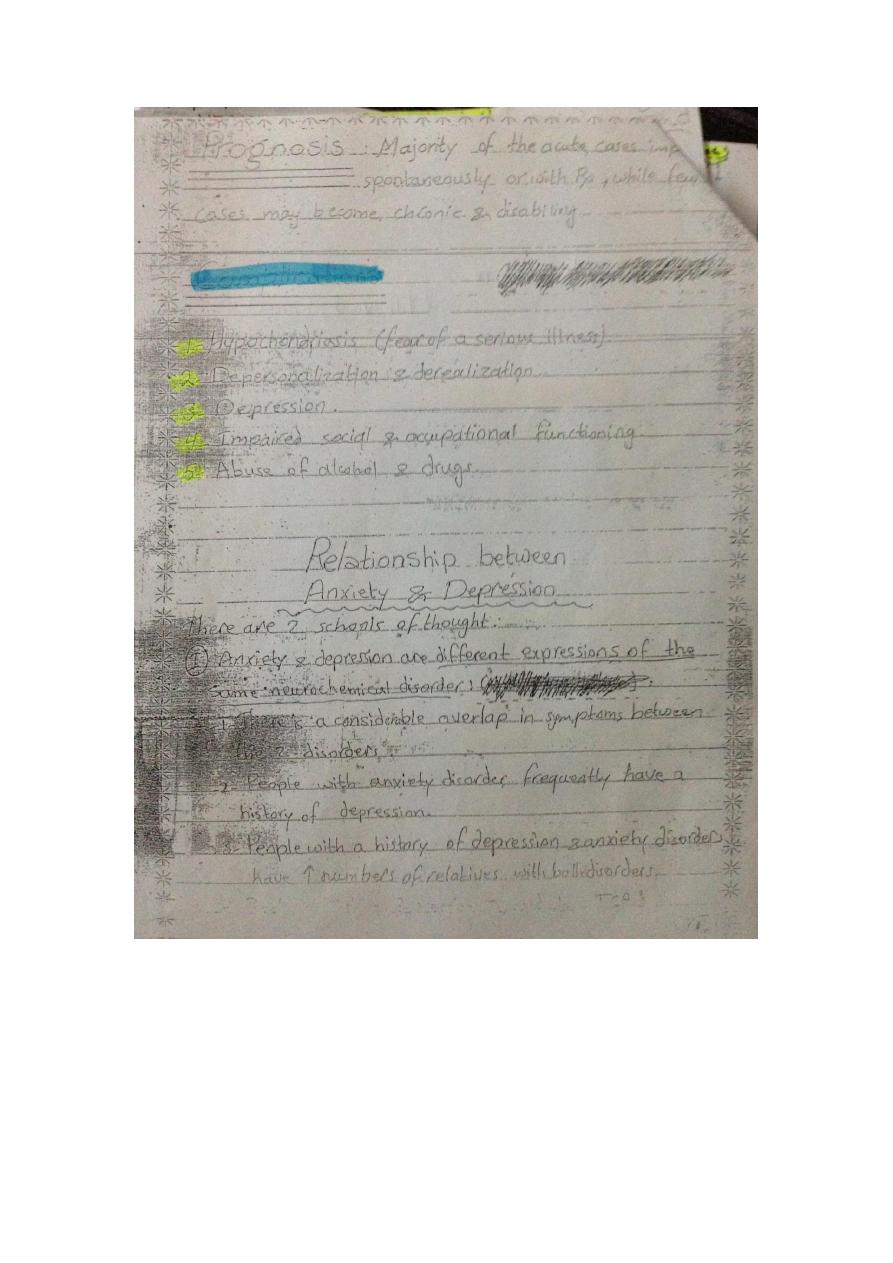 Prognosis : Majority of the acute cases imp
spontaneously or with Rx, while few
cases may become chronic & disabiling
Complications
1. Hypochondriasis (fear of a serious illness)
2. Depersonalization & derealization
3. Depression.
4. Impaired social & ocupational functioning.
5. Abuse of alcohol & drugs.
Relationship between
Anxiety & Depression
There are 2 schools of thought:
① Anxiety & depression are different expressions of the
same neurochemical disorder:
1. There's a considerable overlap in symptoms between
the 2 disorders.
2. People with anxiety disorder frequently have a
history of depression.
3. People with a history of depression & anxiety disorder
have ↑ numbers of relatives with both disorders.